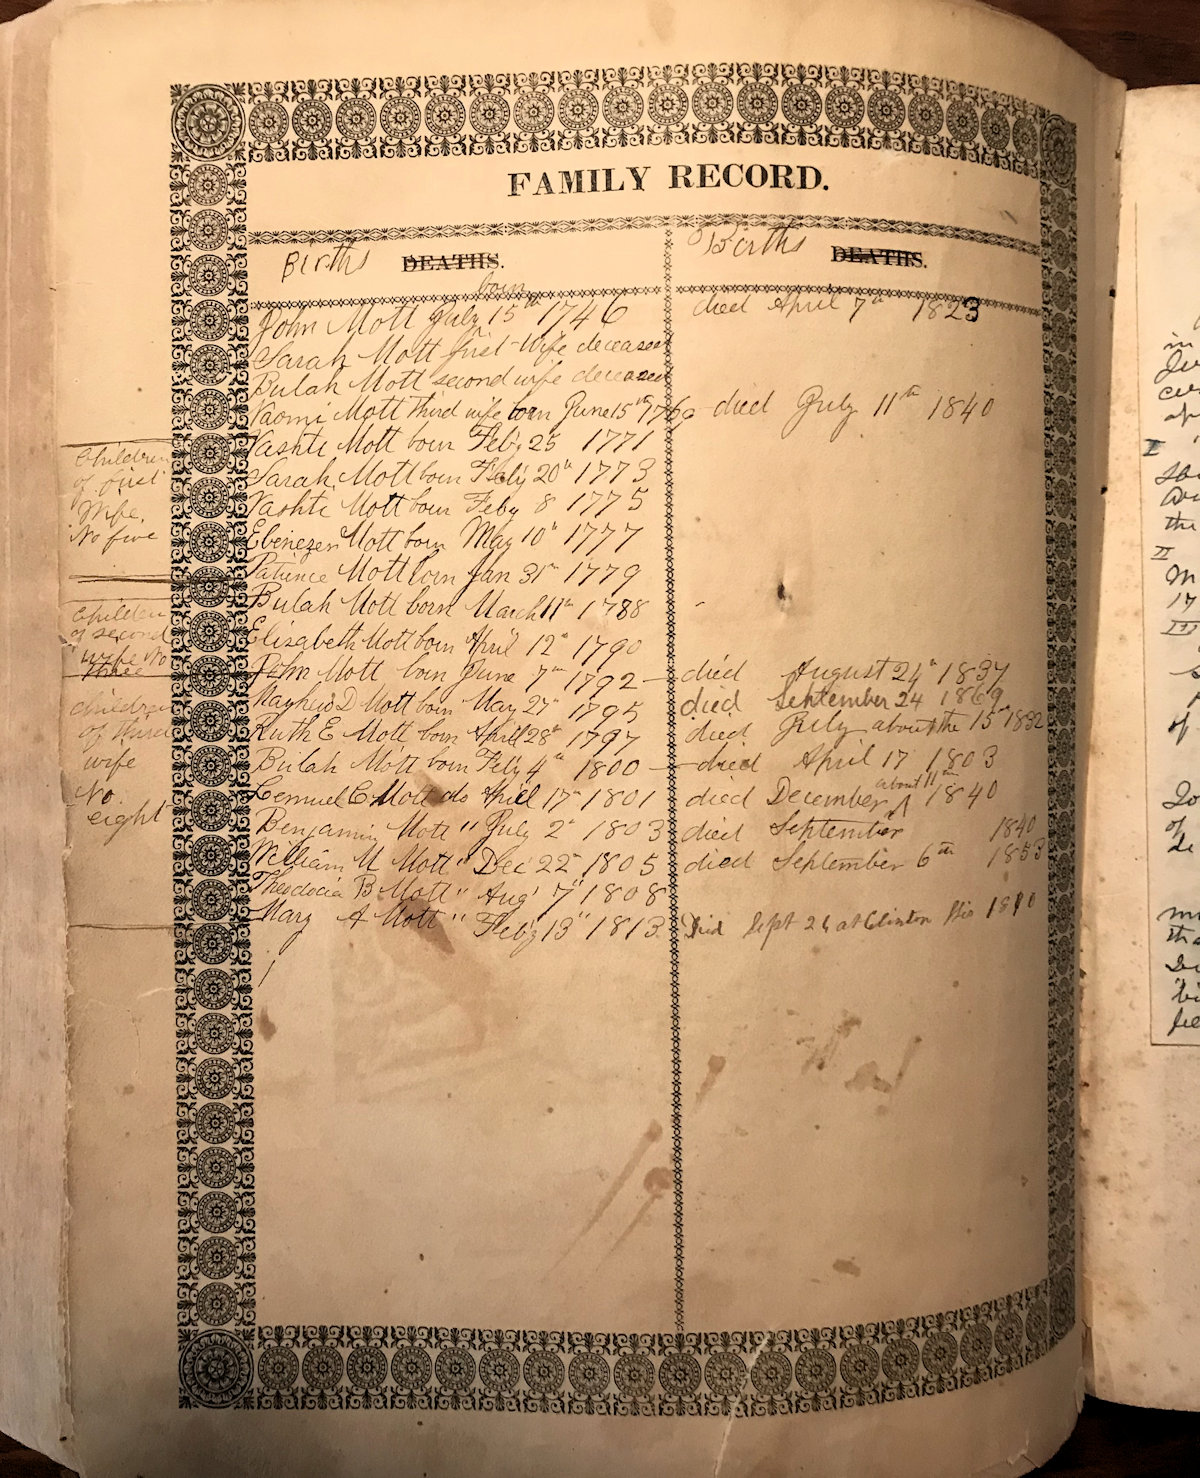 FAMILY RECORD.
Births DEATHS. Births DEATHS.
born
John Mott July 15th 1746 died April 7th 1823
Sarah Mott first wife deceased
Bulah Mott second wife deceased
Naomi Mott third wife born June 15th 1760 died July 11th 1840
Children of first Wife. No five
Vashti Mott born Feby 25 1771
Sarah Mott born Feby 20th 1773
Vashti Mott born Feby 8 1775
Ebenezer Mott born May 10th 1777
Patience Mott born Jan 31st 1779
Children of second wife No three
Bulah Mott born March 11th 1788
Elizabeth Mott born April 12th 1790
John Mott born June 7th 1792 died August 24th 1837
children of third wife No. eight
Mayhew D Mott born May 27th 1795 died September 24 1869
Ruth E Mott born April 28th 1797 died July about the 15th 1832
Bulah Mott born Feby 4th 1800 died April 17 1803
Lemuel C Mott do April 17th 1801 died December about 11th 1840
Benjamin Mott " July 2d 1803 died September 1840
William U Mott " Dec 22d 1805 died September 6th 1853
Theodocia B Mott " Aug 7 1808
Mary A Mott " Feby 13 1813 Died Sept 26 at Clinton
in
the
II
M
17
III
of